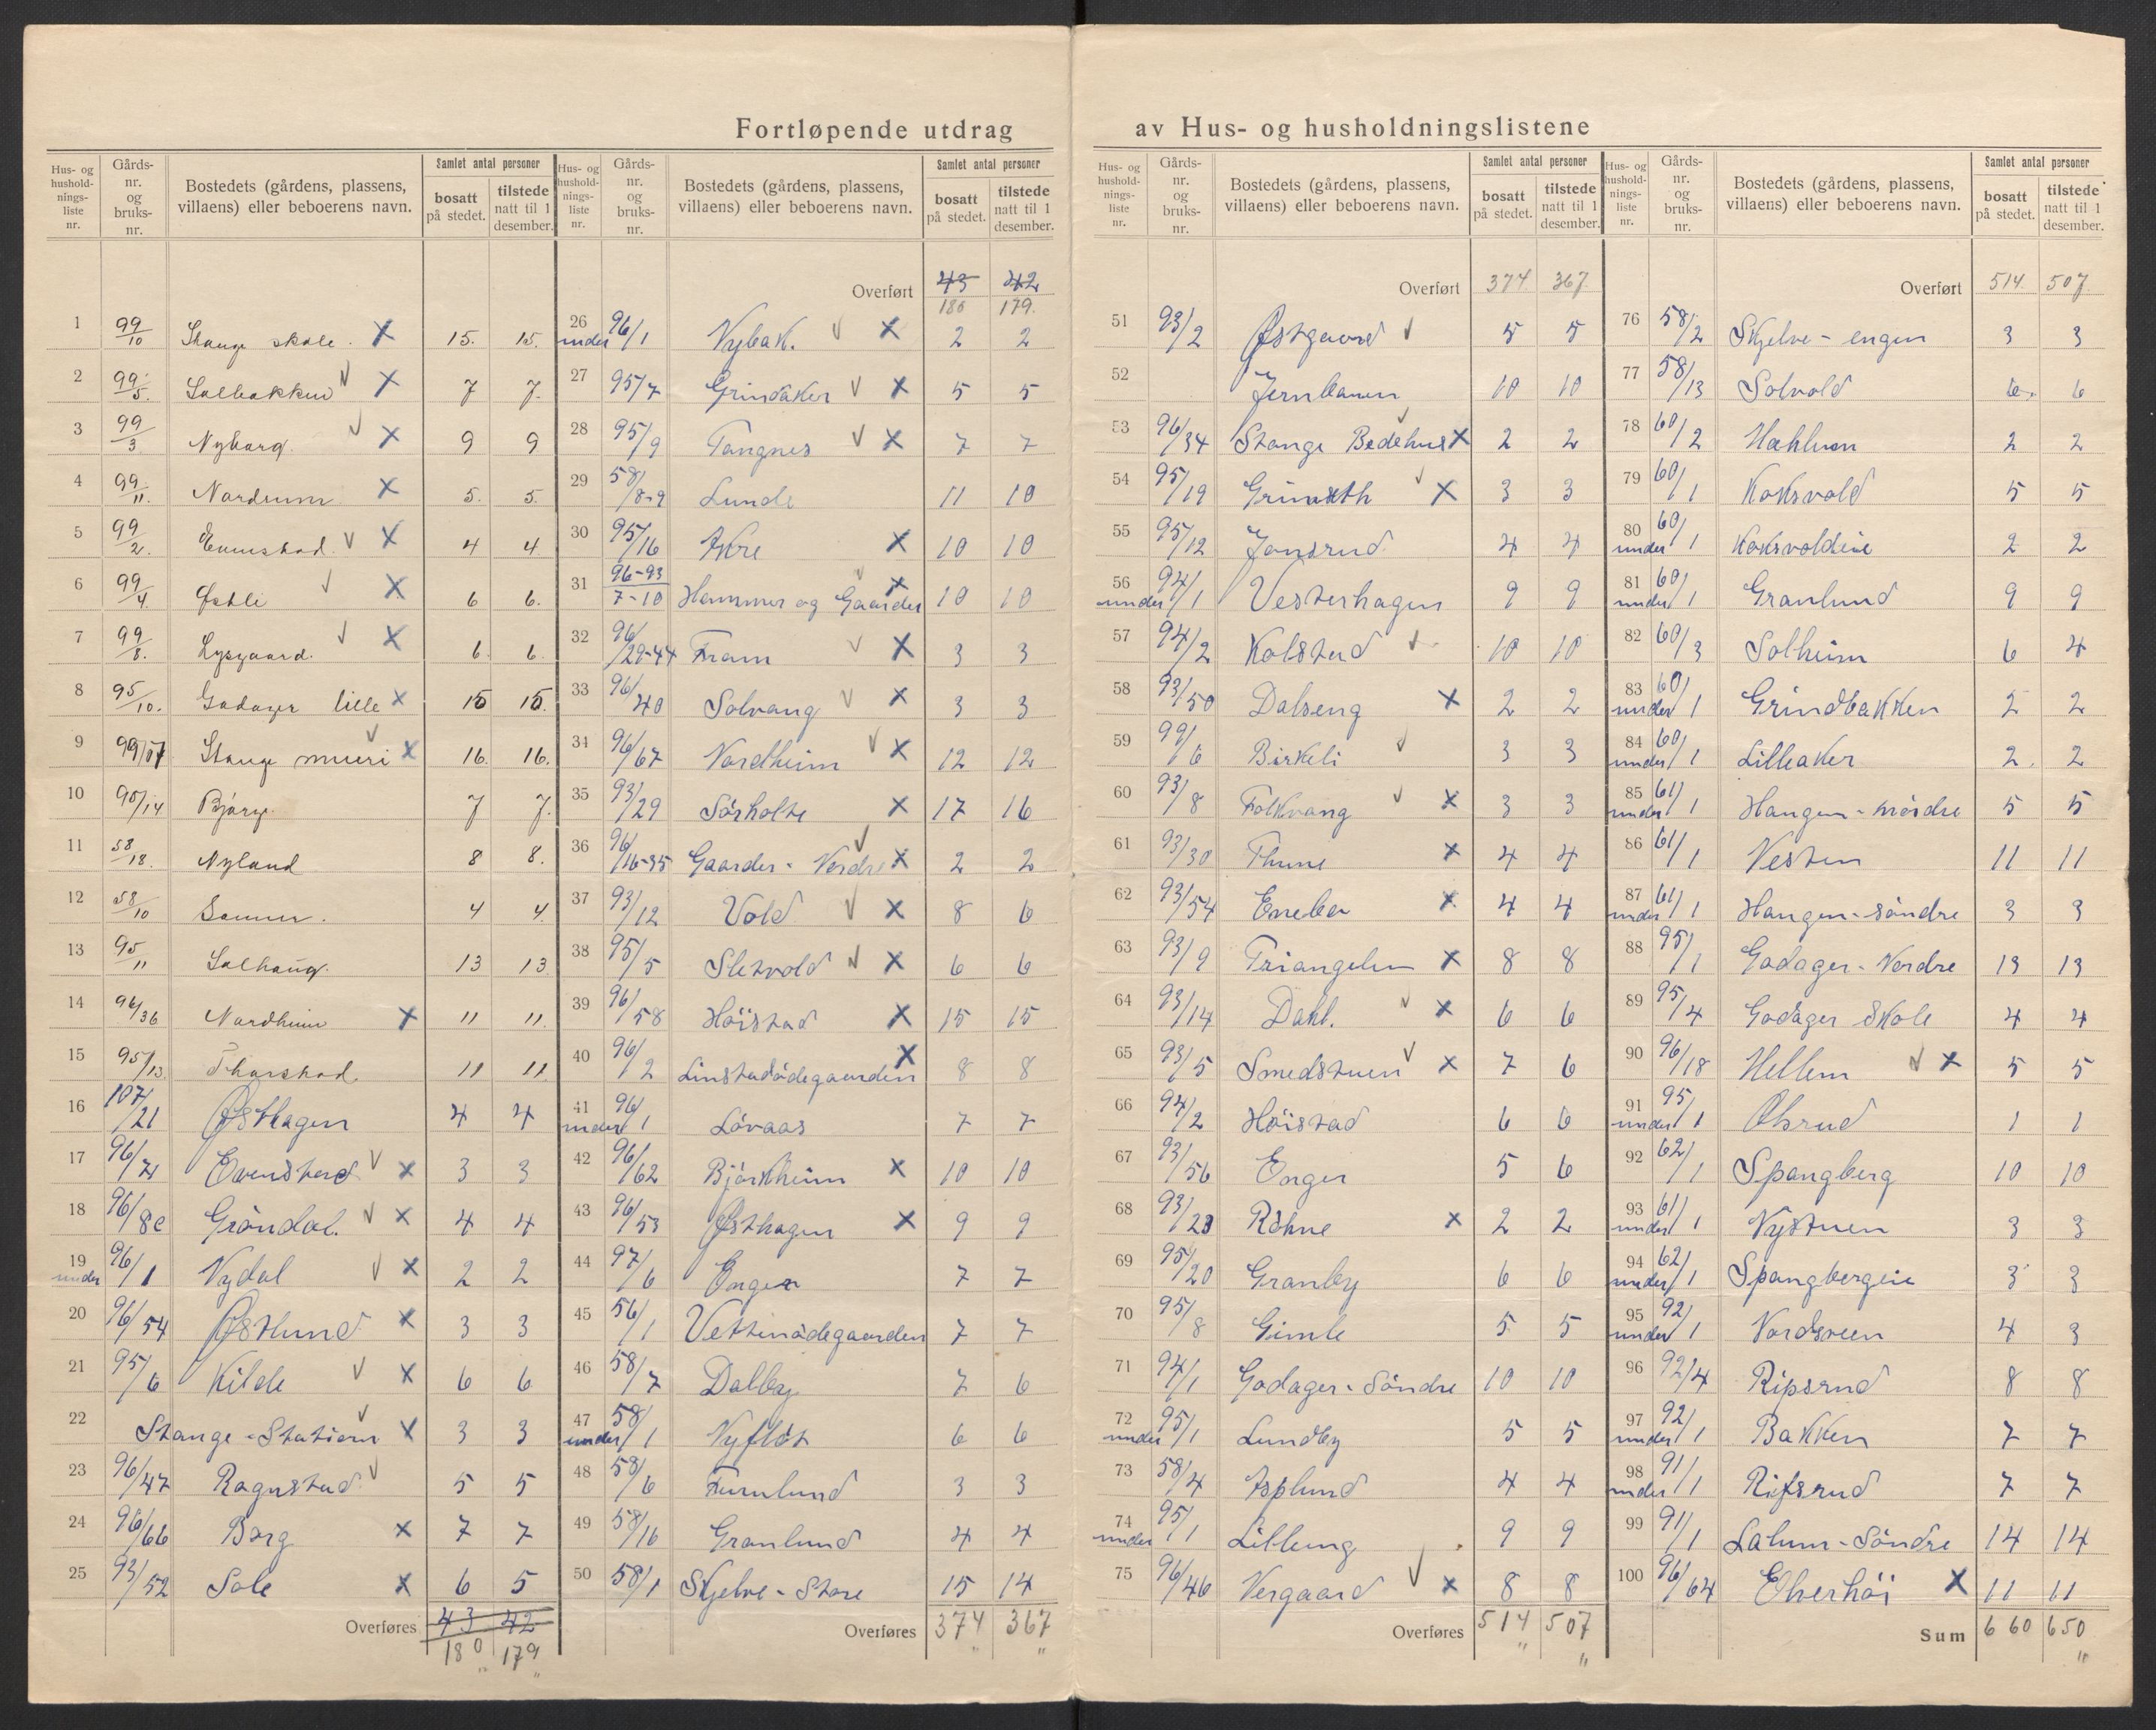 Fortløpende utdrag av Hus- og husholdningslistene
Hus- og hushold-nings-liste nr. | Gårds-nr. og bruks-nr. | Bostedets (gårdens, plassens, villaens) eller beboerens navn. | Samlet antal personer | bosatt på stedet. | tilstede natt til 1 desember.
1 99/10 Stange skole. X 15. 15.
2 99/5. Solbakken V X 7 7.
3 99/3 Nyborg. V X 9 9
4 99/11. Nordrum X 5. 5.
5 99/2. Evenstad. V X 4 4
6 99/4. Østli V X 6 6.
7 99/8. Lysgaard. V X 6. 6.
8 95/10. Godager lille X 15 15.
9 Stange mieri V X 16. 16.
10 95/14 Bjørg. 7 7.
11 58/18. Nyland 8 8.
12 58/10 4 4.
13 95/11 Solhaug. 13 13
14 96/36 Nordheim X 11 11.
15 95/13. Thorstad 11 11
16 107/21 Østhagen 4 4
17 96/ Evenstad V X 3 3
18 96/8c Gröndal. V X 4 4
19 under 96/1 Nydal V X 2 2
20 96/54 Østlund X 3 3
21 95/6 Kilde V X 6 6
22 Stange - Station V X 3 3
23 96/47 Ragnstad V 5 5
24 96/66 Borg X 7 7
25 93/52 Sole X 6 5
Overføres 43 42
180 179
Hus- og hushold-nings-liste nr. | Gårds-nr. og bruks-nr. | Bostedets (gårdens, plassens, villaens) eller beboerens navn. | Samlet antal personer | bosatt på stedet. | tilstede natt til 1 desember.
Overført 43 42
180 179.
26 under 96/1 Nybak. V X 2 2
27 95/7 Grindaker V X 5 5
28 95/9 Tangnes V X 7 7
29 58/8-9 Lunde 11 10
30 95/16 Akre X 10 10
31 96-93/7-10 Hammer og Gaarder V X 10 10
32 96/29-44 Fram V X 3 3
33 96/40 Solvang V X 3 3
34 96/67 Nordheim V X 12 12
35 93/29 Sörholte X 17 16
36 96/16-35 Gaarder - Nordre V X 2 2
37 93/12 Vold V X 8 6
38 95/5 Sletvold V X 6 6
39 96/58 Höistad X 15 15
40 96/2 Linstadödegaarden X 8 8
41 under 96/1 Lövaas 7 7
42 96/62 Björkheim X 10 10
43 96/53 Østhagen X 9 9
44 97/6 Enger 7 7
45 56/1 Vettenödegaarden 7 7
46 58/7 Dalby 7 6
47 under 58/1 Nyflöt 6 6
48 58/6 Furulund 3 3
49 58/16 Granlund 4 4
50 58/1 Skjelve - Store 15 14
Overføres 374 367
Hus- og hushold-nings-liste nr. | Gårds-nr. og bruks-nr. | Bostedets (gårdens, plassens, villaens) eller beboerens navn. | Samlet antal personer | bosatt på stedet. | tilstede natt til 1 desember.
Overført 374 367
51 93/2 Østgaard V 5 5
52 Jernbanen 10 10
53 96/34 Stange Bedehus V X 2 2
54 95/19 V X 3 3
55 95/12 Jonsrud 4 4
56 under 94/1 Vesterhagen 9 9
57 94/2 Kolstad V 10 10
58 93/50 Dalseng X 2 2
59 99/6 Birkeli V 3 3
60 93/8 Folkvang V X 3 3
61 93/30 Thune X 4 4
62 93/54 Enebo X 4 4
63 93/9 Triangelen X 8 8
64 93/14 Dahl. V X 6 6
65 93/5 Smedstuen V X 7 6
66 94/2 Höistad 6 6
67 93/56 Enger 5 6
68 Röhne X 2 2
69 95/20 Granby 6 6
70 95/8 Gimle 5 5
71 94/1 Godager - Söndre 10 10
72 under 95/1 Lundby 5 5
73 58/4 Asplund 4 4
74 under 95/1 Lilleeng 9 9
75 96/46 Vergaard V X 8 8
Overføres 514 507
Hus- og hushold-nings-liste nr. | Gårds-nr. og bruks-nr. | Bostedets (gårdens, plassens, villaens) eller beboerens navn. | Samlet antal personer | bosatt på stedet. | tilstede natt til 1 desember.
Overført 514 507.
76 58/2 Skjelve - engen 3 3
77 58/13 Solvold 6. 6
78 60/2 Hæhlum 2 2
79 60/1 Koksvold 5 5
80 under 60/1 Koksvoldeie 2 2
81 under 60/1 Granlund 9 9
82 60/3 Solheim 6 4
83 under 60/1 Grindbakken 2 2
84 under 60/1 Lilleaker 2 2
85 under 61/1 Hangen - nordre 5 5
86 61/1 Vesten 11 11
87 under 61/1 Hangen - söndre 3 3
88 95/1 Godager - Nordre 13 13
89 95/4 Godager Skole 4 4
90 96/18 Hellem V X 5 5
91 under 95/1 Olsrud 1 1
92 62/1 Spangberg 10 10
93 under 61/1 Nystuen 3 3
94 under 62/1 Spangbergeie 3 3
95 under 92/1 Nordsveen 4 3
96 92/4 Ripsrud 8 8
97 under 92/1 Bakken 7 7
98 under 91/1 Ripsrud 7 7
99 91/1 Lalum - Söndre 14 14
100 96/64 Elverhöi X 11 11
Sum 660 650